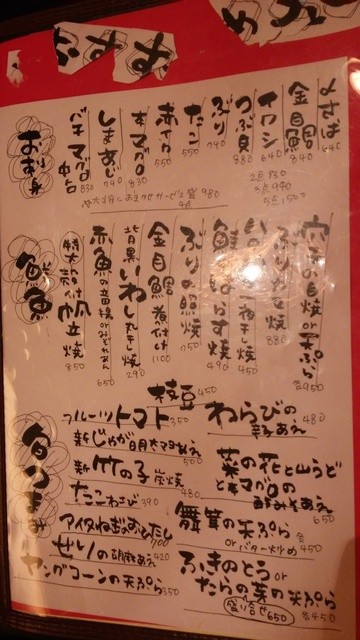 おすすめ
おさし身
〆さば 640
金目鯛 840
イワシ 640
つぶ貝 880
ぶり 740
たこ 550
赤イカ 550
本マグロ 830
しまあじ 740
バチマグロ中トロ 830
2点
3点 990
5点 1500
焼魚
穴子の白焼 or 天ぷら 各950
ぶりカマ焼 880
一夜干し焼 450
鮭はらす焼 490
ぶりの照焼 750
金目鯛煮付け 1100
背黒いわし丸干し焼 290
赤魚の西京揚 or みぞれあん 650
特大殻付帆立焼 850
旬つまみ
枝豆 450
わらびの辛子あえ 480
フルーツトマト 350
新じゃが明太マヨあえ 500
菜の花と山うどと本マグロの酢みそあえ 650
新竹の子炭焼 480
たこわさび 390
舞茸の天ぷら or バター炒め 各450
アイタねぎのおひたし 700
せりの胡麻あえ 420
ふきのとう or たらの芽の天ぷら 各450
盛り合せ 650
ヤングコーンの天ぷら 350